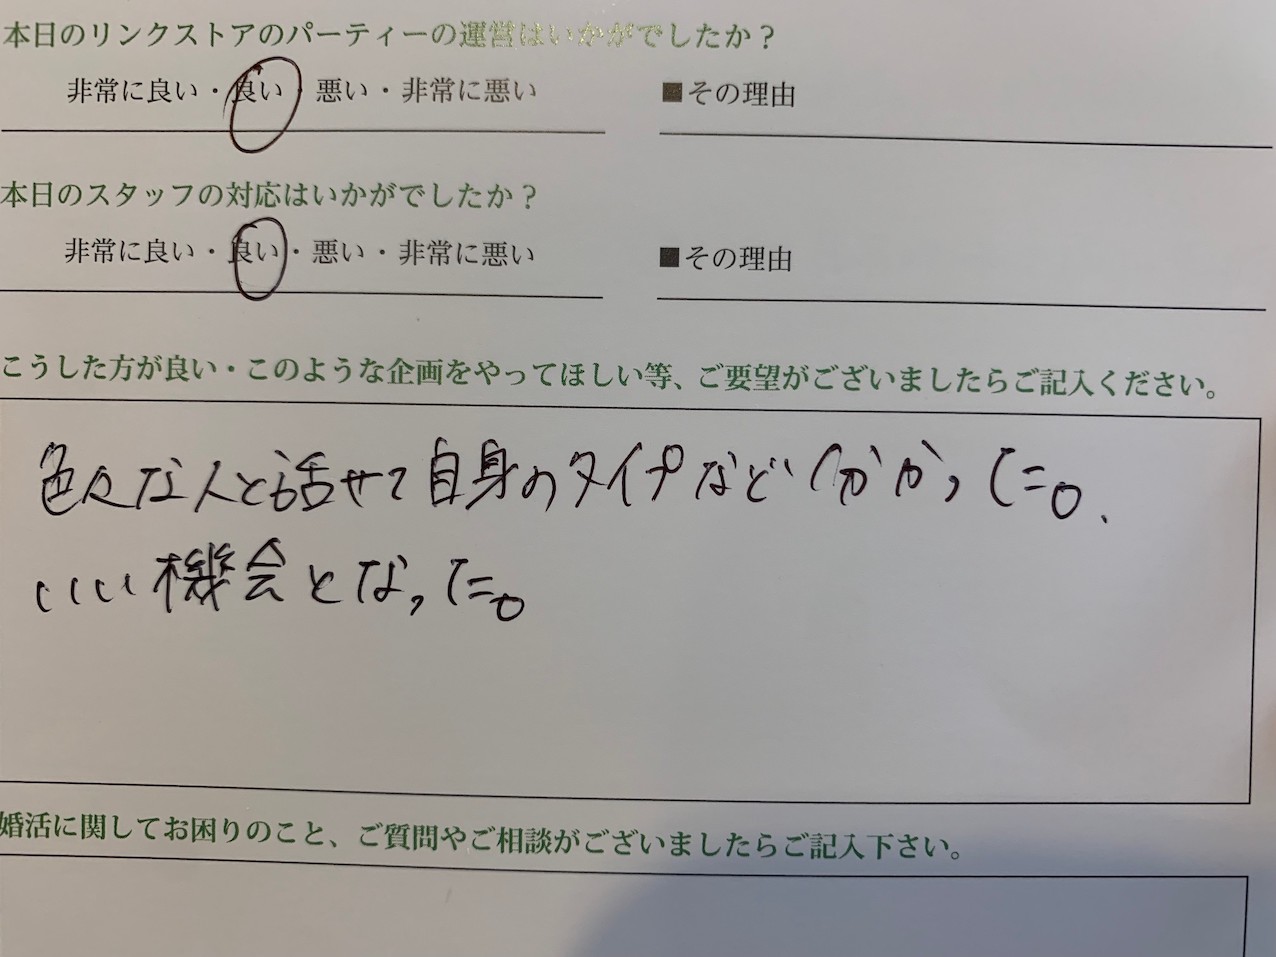 本日のリンクストアのパーティーの運営はいかがでしたか？
非常に良い・良い・悪い・非常に悪い ■その理由
本日のスタッフの対応はいかがでしたか？
非常に良い・良い・悪い・非常に悪い ■その理由
こうした方が良い・このような企画をやってほしい等、ご要望がございましたらご記入ください。
色々な人と話せて自身のタイプなど分かった。
いい機会となった。
婚活に関してお困りのこと、ご質問やご相談がございましたらご記入下さい。